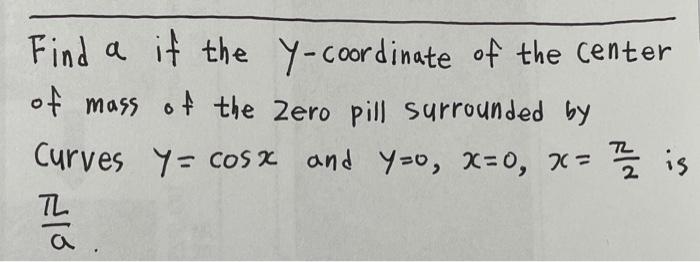 Find a if the y-coordinate of the center
of mass of the zero pill surrounded by
Curves y = cosx and y=0, x=0, x = π/2 is
π/a .